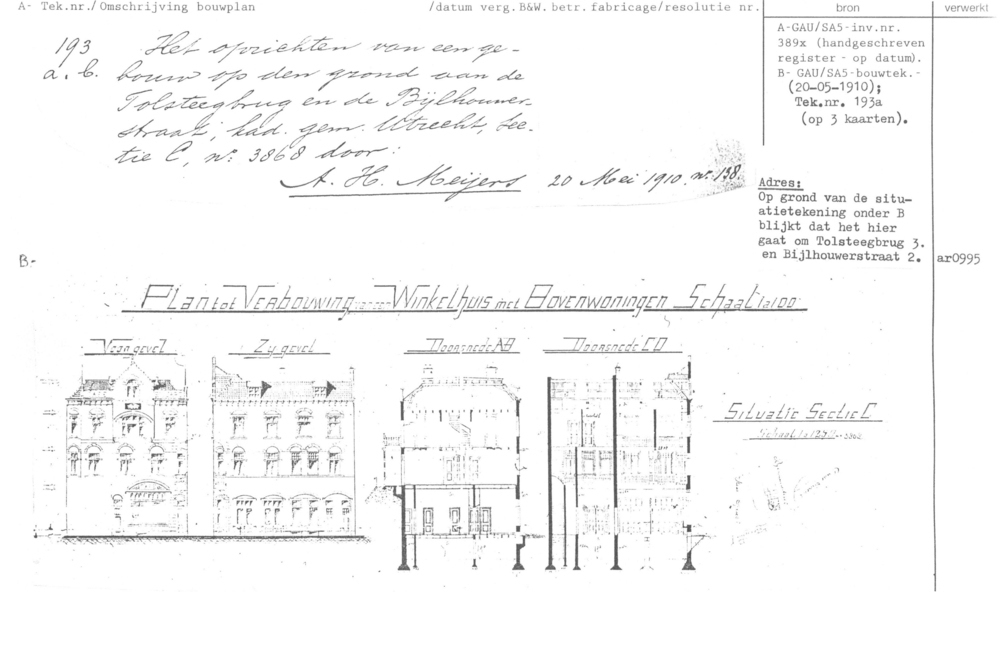 A- Tek.nr./Omschrijving bouwplan /datum verg.B&W. betr. fabricage/resolutie nr. bron verwerkt
193 Het oprichten van een ge-
a. b. bouw op den grond aan de
Tolsteegbrug en de Bijlhouwer-
straat, kad. gem. Utrecht, Sec-
tie C, no. 3868 door:
A. H. Meijers 20 Mei 1910. no. 138.
A-GAU/SA5-inv.nr.
389x (handgeschreven
register - op datum).
B- GAU/SA5-bouwtek.-
(20-05-1910);
Tek.nr. 193a
(op 3 kaarten).
Adres:
Op grond van de situ-
atietekening onder B
blijkt dat het hier
gaat om Tolsteegbrug 3.
en Bijlhouwerstraat 2. ar0995
B-
Plan tot Verbouwing van een Winkelhuis met Bovenwoningen Schaal 1 a 100
Voorgevel Zygevel Doorsnede AB Doorsnede CD
Situatie Sectie C
Schaal 1 a 1250 no 3868